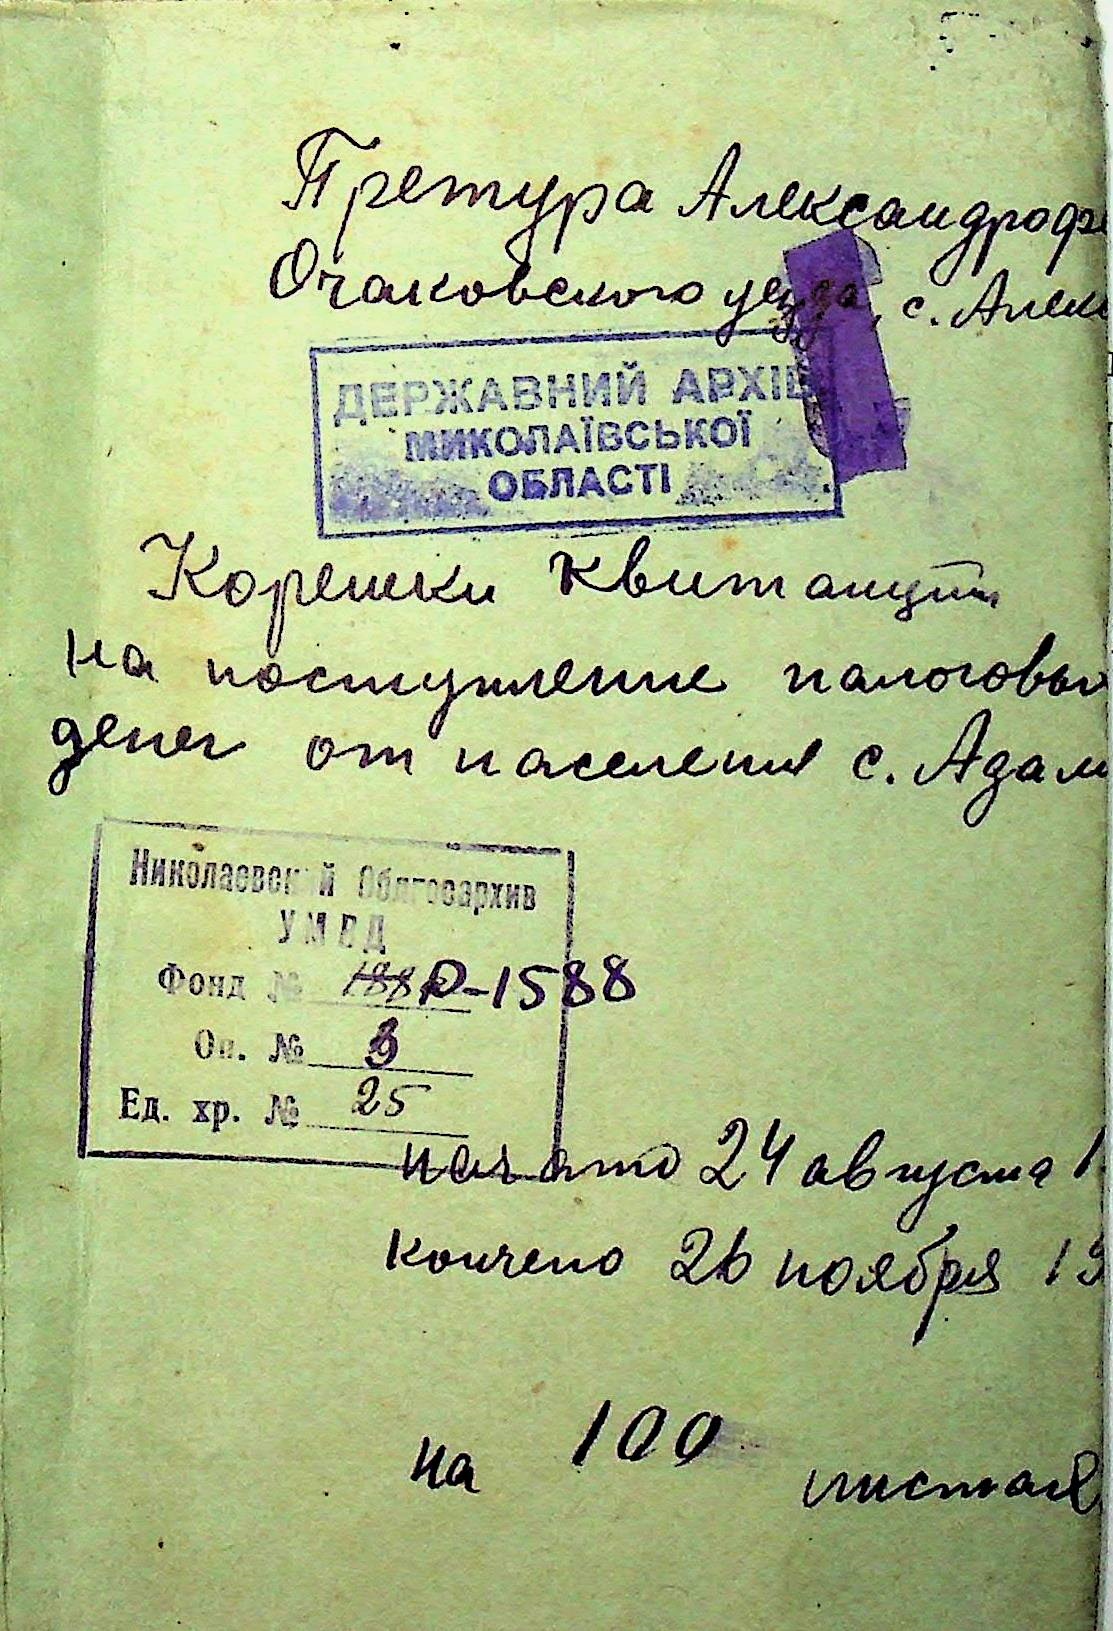 Претура Александроф
Очаковского уезда, с. Алек
ДЕРЖАВНИЙ АРХІВ
МИКОЛАЇВСЬКОЇ
ОБЛАСТІ
Корешки квитанций
на поступление налоговы
денег от населения с. Адам
Николаевский Облгосархив
УМВД
Фонд № 188 Р-1588
Оп. № 3
Ед. хр. № 25
начато 24 августа 1
кончено 26 ноября 19
на 100 листах